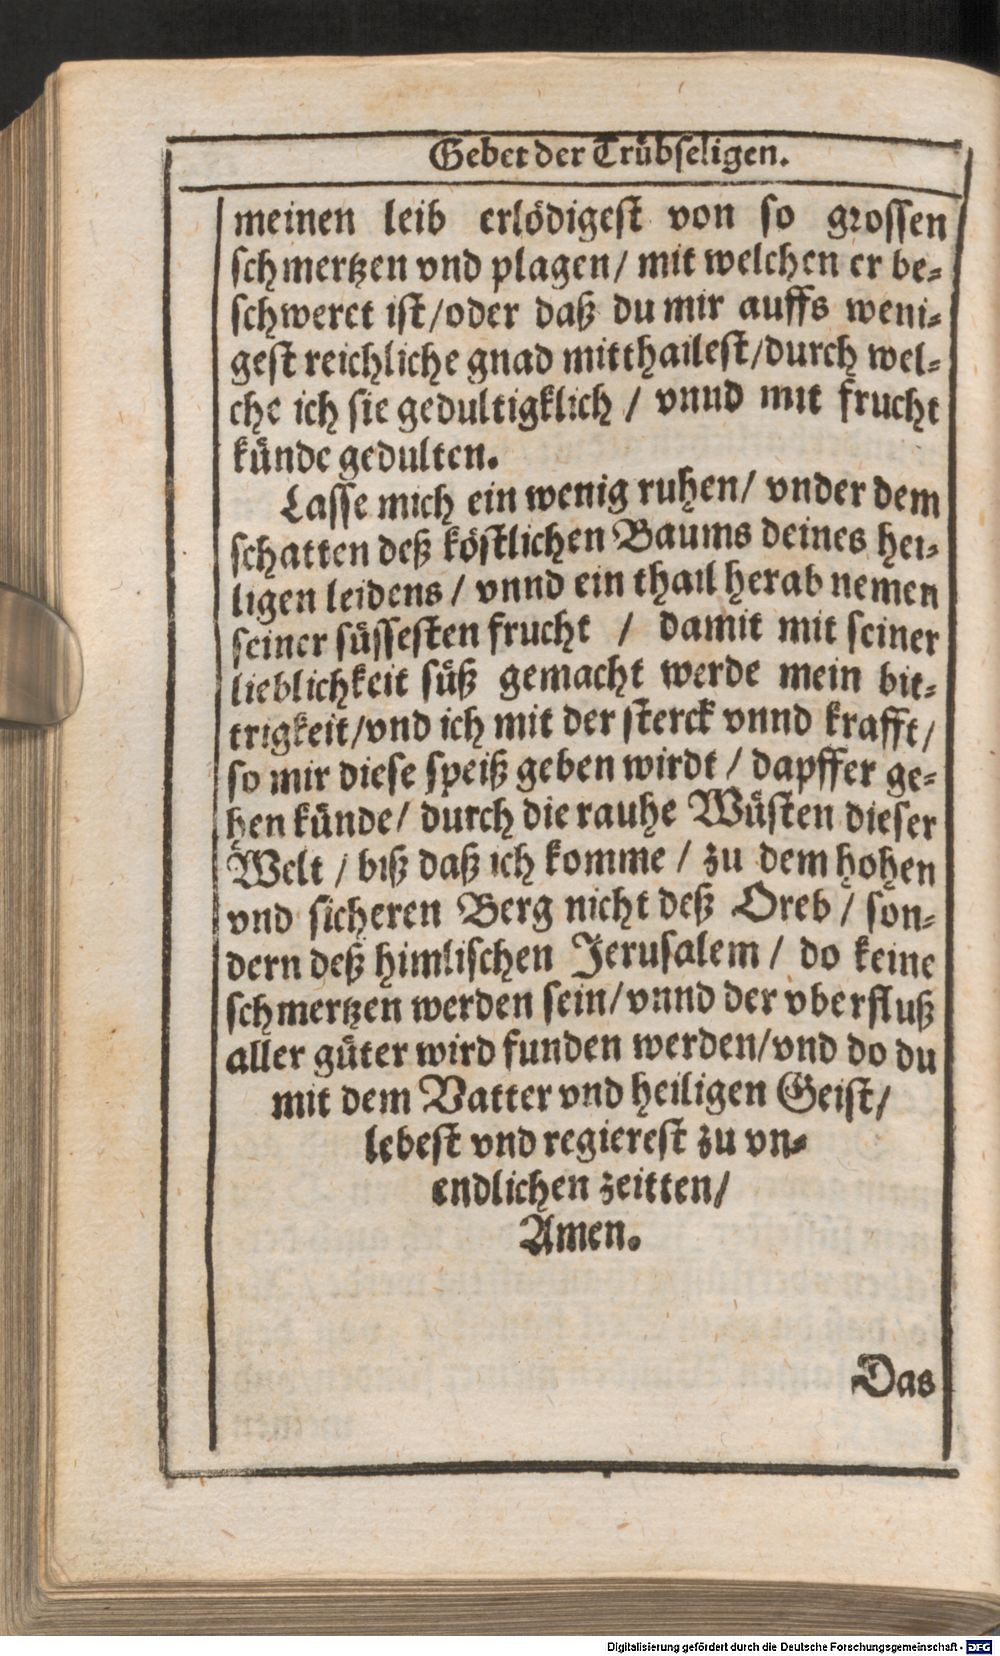 Gebet der Trübseligen.
meinen leib erlödigest von so grossen
schmertzen vnd plagen/ mit welchen er be-
schweret ist/oder daß du mir auffs weni-
gest reichliche gnad mitthailest/durch wel-
che ich sie gedultigklich / vnnd mit frucht
künde gedulten.
Lasse mich ein wenig ruhen/ vnder dem
schatten deß köstlichen Baums deines hei-
ligen leidens / vnnd ein thail herab nemen
seiner süssesten frucht / damit mit seiner
lieblichkeit süß gemacht werde mein bit-
trigkeit/vnd ich mit der sterck vnnd krafft/
so mir diese speiß geben wirdt / dapffer ge-
hen künde/ durch die rauhe Wüsten dieser
Welt / biß daß ich komme / zu dem hohen
vnd sicheren Berg nicht deß Oreb / son-
dern deß himlischen Jerusalem / do keine
schmertzen werden sein/vnnd der vberfluß
aller güter wird funden werden/vnd do du
mit dem Vatter vnd heiligen Geist/
lebest vnd regierest zu vn-
endlichen zeitten/
Amen.
Das
Digitalisierung gefördert durch die Deutsche Forschungsgemeinschaft - DFG